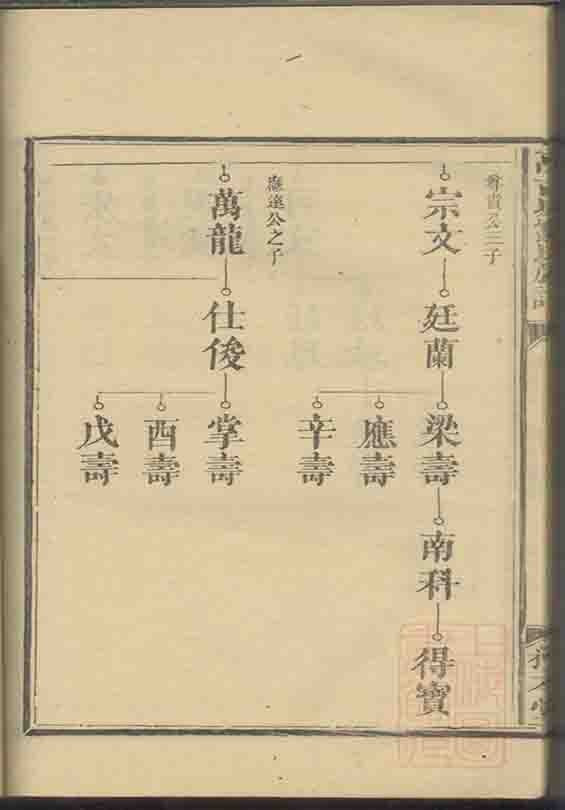 貴公三子
宗文
廷蘭
梁壽
南科
得寶
應壽
辛壽
應達公之子
萬龍
仕俊
掌壽
酉壽
戊壽